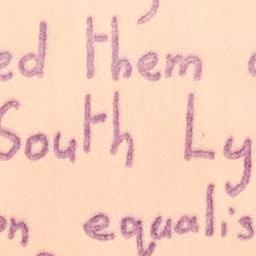 ed them
South Ly
on equalis